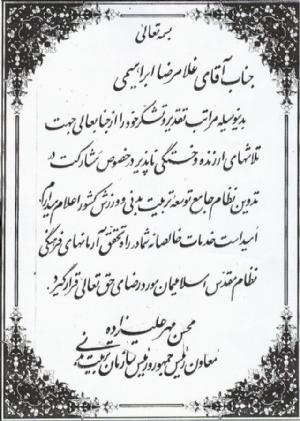 بسمه تعالی
جناب آقای غلامرضا ابراهیمی
بدینوسیله مراتب تقدیر و تشکر خود را از جنابعالی جهت
تلاشهای ارزنده و خستگی ناپذیر در خصوص مشارکت در
تدوین نظام جامع توسعه تربیت بدنی و ورزش کشور اعلام میدارم.
امید است خدمات خالصانه شما در راه تحقق آرمانهای فرهنگی
نظام مقدس اسلامیمان مورد رضای حق تعالی قرار گیرد.
محسن مهرعلیزاده
معاون رئیس جمهور و رئیس سازمان تربیت بدنی